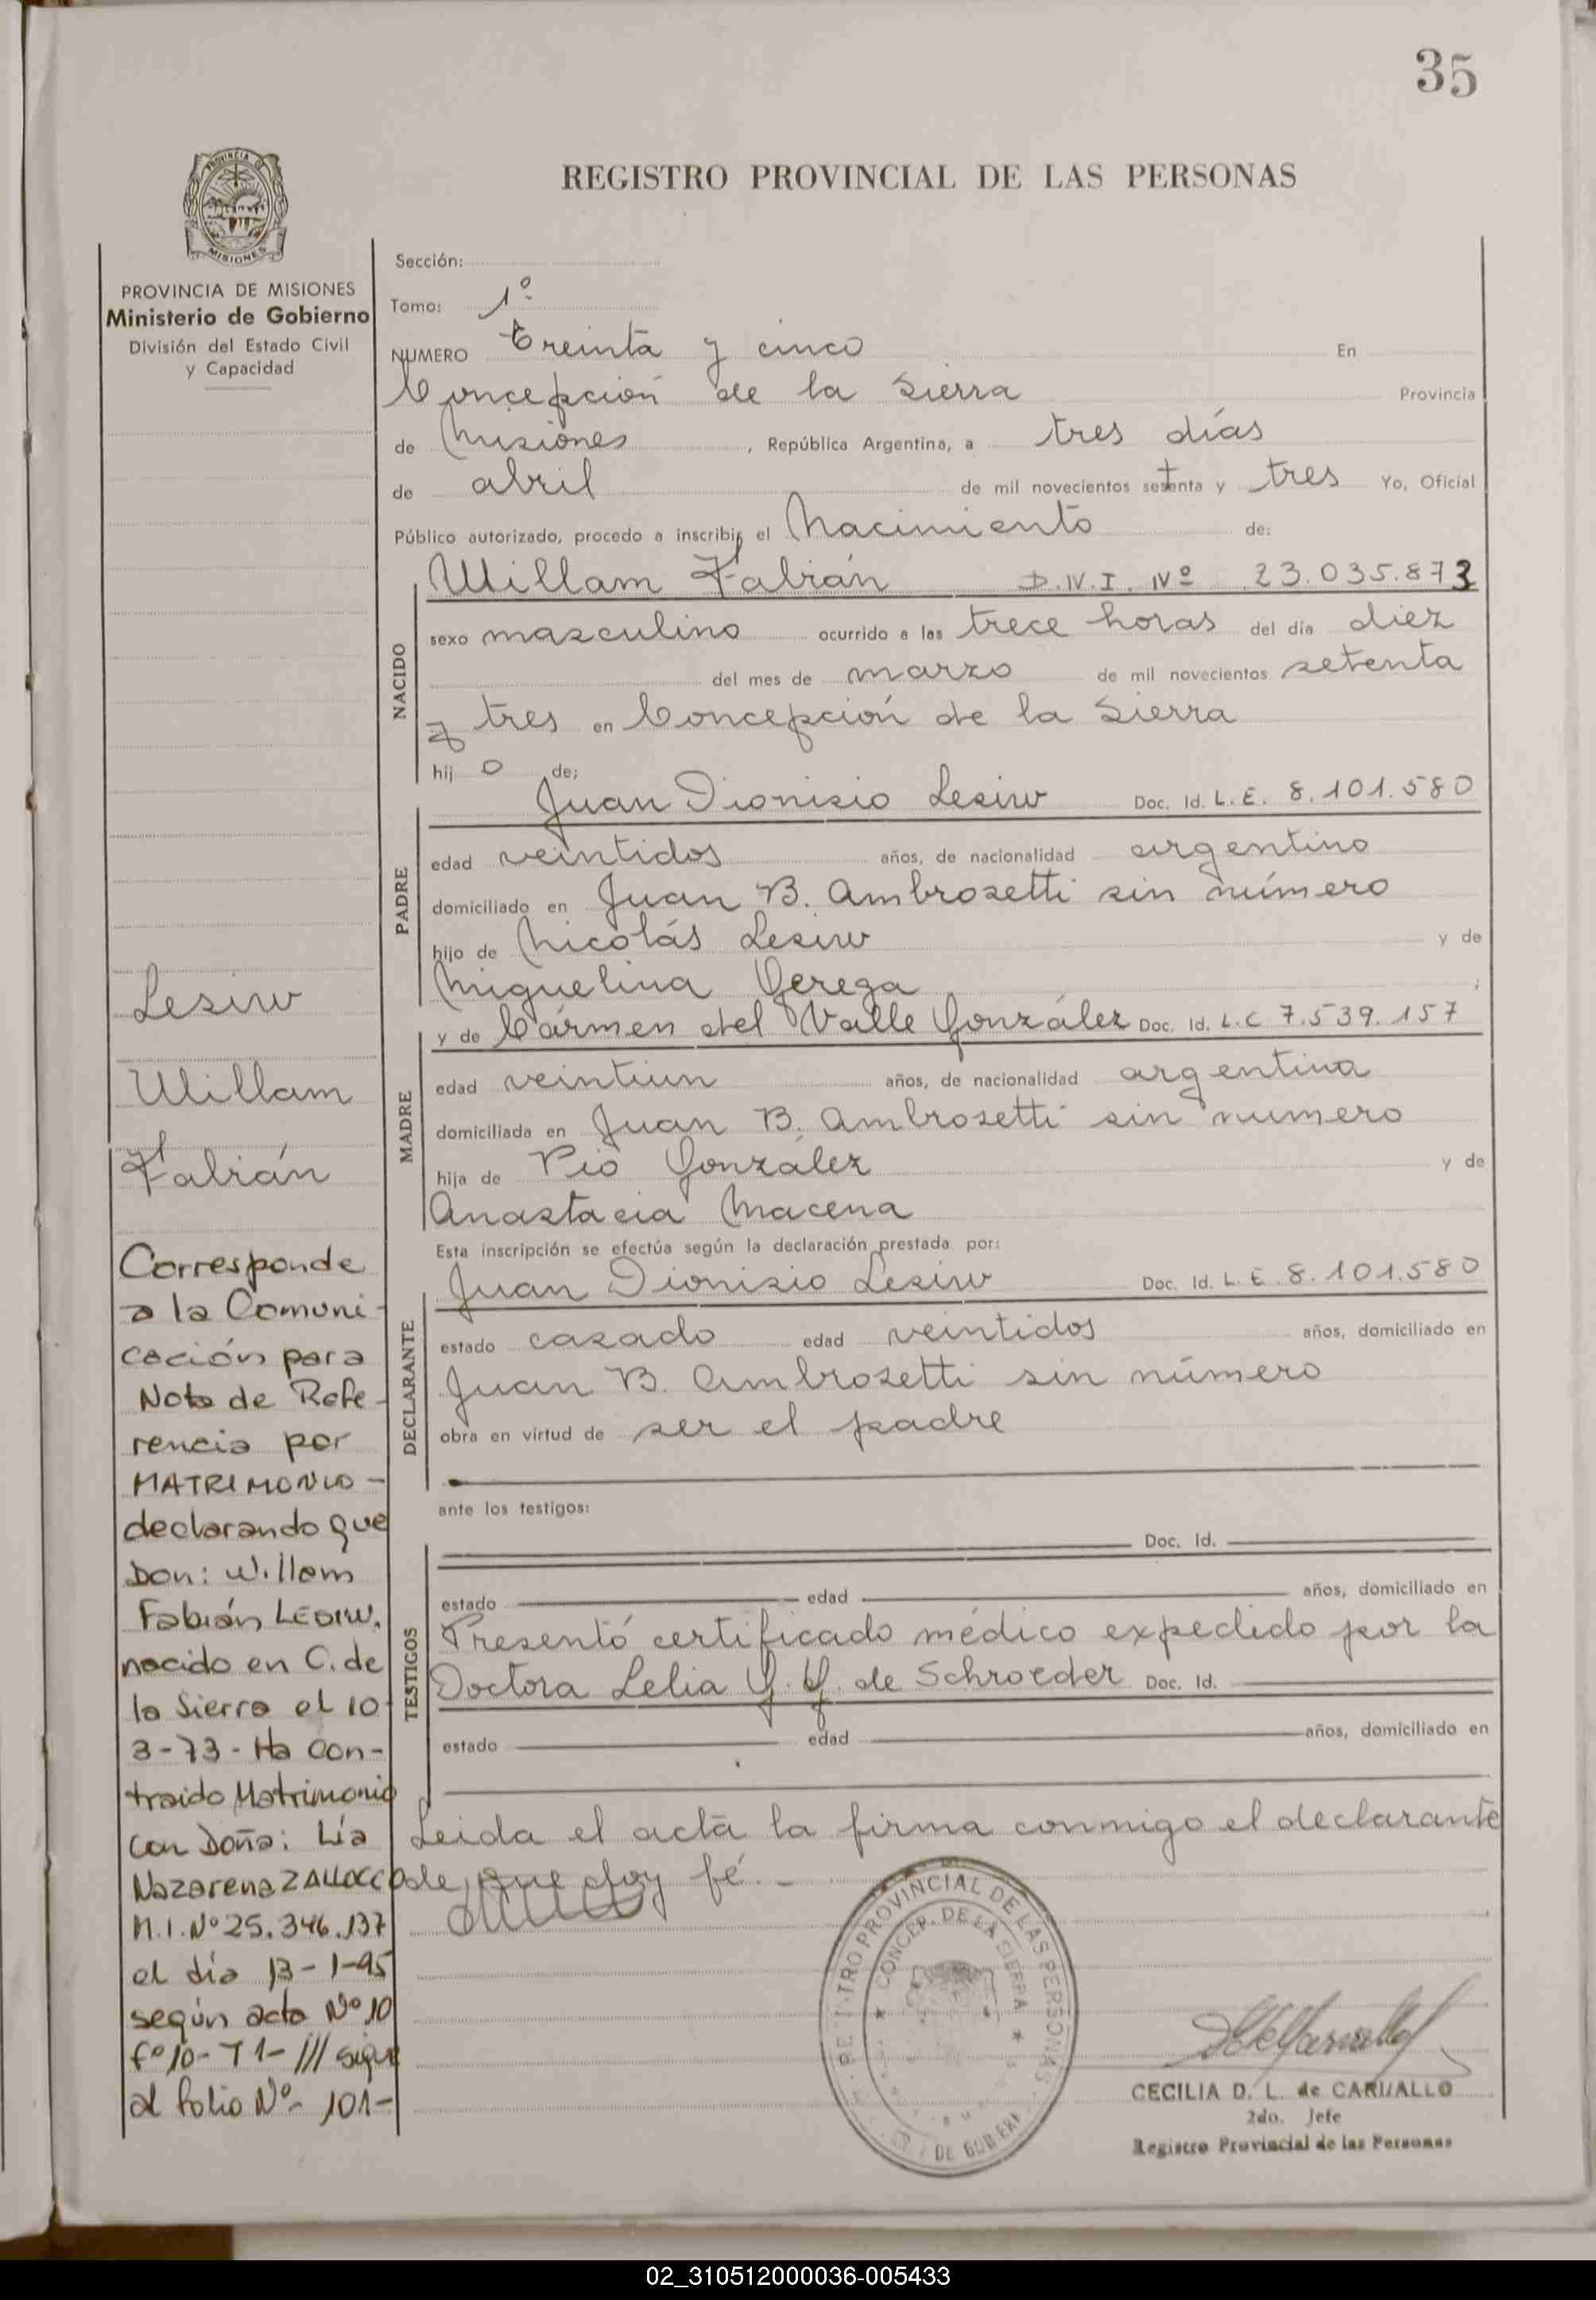 35
PROVINCIA DE
MISIONES
REGISTRO PROVINCIAL DE LAS PERSONAS
PROVINCIA DE MISIONES
Ministerio de Gobierno
División del Estado Civil
y Capacidad
Sección:
Tomo: 1º
NUMERO Treinta y cinco En
Concepción de la Sierra Provincia
de Misiones, República Argentina, a tres días
de abril de mil novecientos setenta y tres Yo, Oficial
Público autorizado, procedo a inscribir el Nacimiento de:
NACIDO
Willam Fabián D.N.I. Nº 23.035.873
sexo masculino ocurrido a las trece horas del día diez
del mes de marzo de mil novecientos setenta
y tres en Concepción de la Sierra
hijo de;
PADRE
Juan Dionisio Lesiw Doc. Id. L.E. 8.101.580
edad veintidos años, de nacionalidad argentino
domiciliado en Juan B. Ambrosetti sin número
hijo de Nicolás Lesiw y de
Miguelina Gerega ;
MADRE
y de Cármen del Valle González Doc. Id. L.C 7.539.157
edad veintiun años, de nacionalidad argentina
domiciliada en Juan B. Ambrosetti sin numero
hija de Pío González y de
Anastacia Macena
Esta inscripción se efectúa según la declaración prestada por:
DECLARANTE
Juan Dionisio Lesiw Doc. Id. L.E. 8.101.580
estado casado edad veintidos años, domiciliado en
Juan B. Ambrosetti sin número
obra en virtud de ser el padre
ante los testigos:
TESTIGOS
Doc. Id.
estado edad años, domiciliado en
Presentó certificado médico expedido por la
Doctora Lelia G. G. de Schroeder Doc. Id.
estado edad años, domiciliado en
Leida el acta la firma conmigo el declarante
de que doy fé. -
Lesiw
Willam
Fabián
Corresponde
a la Comuni-
cación para
Nota de Refe-
rencia por
MATRIMONIO -
declarando que
Don: Willam
Fabián LESIW.
nacido en C. de
la Sierra el 10-
3-73 - Ha Con-
traido Matrimonio
con Doña: Lía
Nazarena ZALLOCCO
M.I. Nº 25.346.137
el día 13-1-95
según acta Nº 10
fº 10 - T 1 - /// sigue
al folio Nº - 101 -
PROVINCIAL DE LAS PERSONAS
CONCEP. DE LA SIERRA
CECILIA D. L. de CARVALLO
2do. Jefe
Registro Provincial de las Personas
02_310512000036-005433